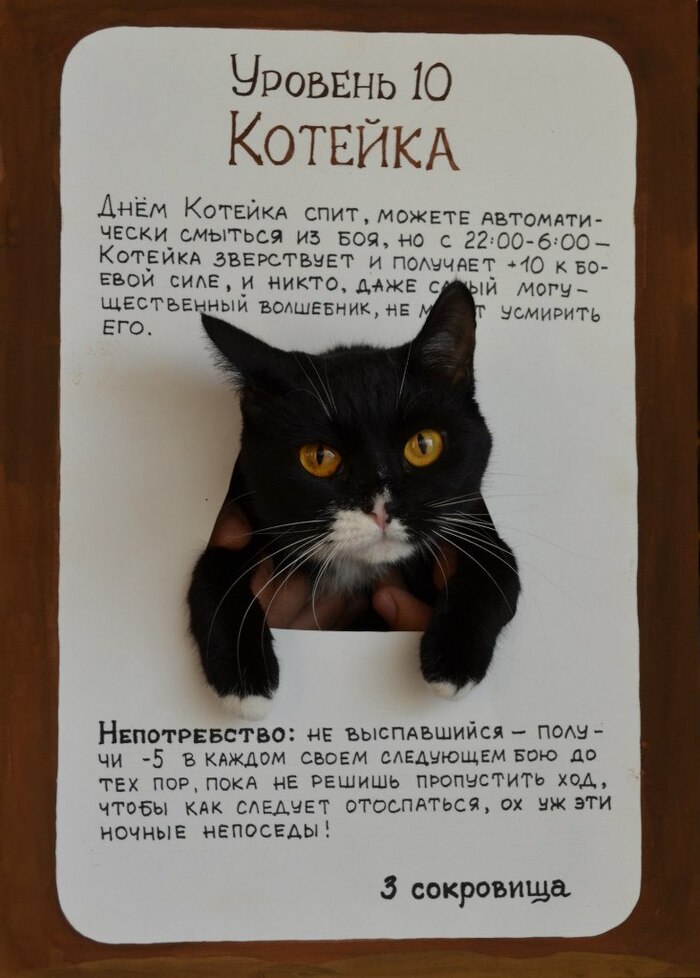 Уровень 10
Котейка
Днём Котейка спит, можете автомати-
чески смыться из боя, но с 22:00-6:00 –
Котейка зверствует и получает +10 к бо-
евой силе, и никто, даже самый могу-
щественный волшебник, не может усмирить
его.
Непотребство: не выспавшийся – полу-
чи -5 в каждом своем следующем бою до
тех пор, пока не решишь пропустить ход,
чтобы как следует отоспаться, ох уж эти
ночные непоседы!
3 сокровища